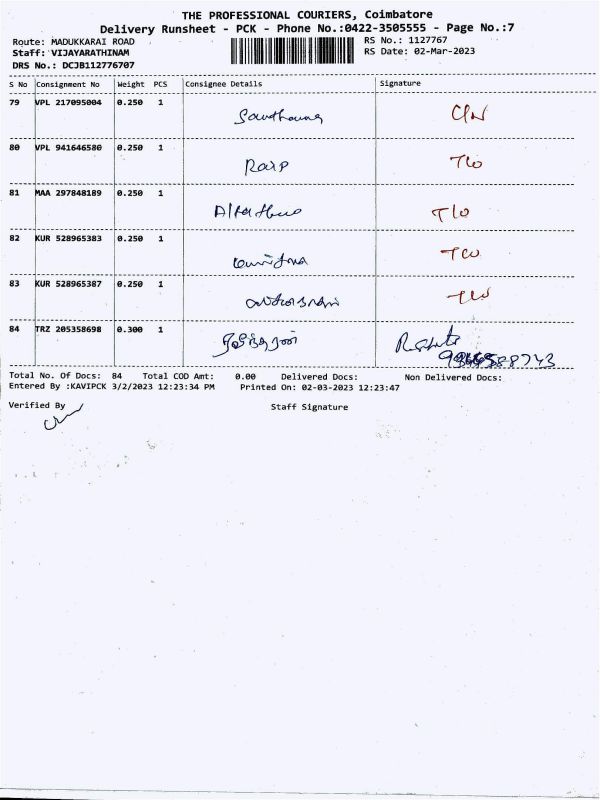 THE PROFESSIONAL COURIERS, Coimbatore
Delivery Runsheet - PCK - Phone No.:0422-3505555 - Page No.:7
Route: MADUKKARAI ROAD RS No.: 1127767
Staff: VIJAYARATHINAM RS Date: 02-Mar-2023
DRS No.: DCJB112776707
S No Consignment No Weight PCS Consignee Details Signature
79 VPL 217095004 0.250 1
80 VPL 941646580 0.250 1
81 MAA 297848189 0.250 1 T/o
82 KUR 528965383 0.250 1
83 KUR 528965387 0.250 1
84 TRZ 205358698 0.300 1
Total No. Of Docs: 84 Total COD Amt: 0.00 Delivered Docs: Non Delivered Docs:
Entered By :KAVIPCK 3/2/2023 12:23:34 PM Printed On: 02-03-2023 12:23:47
Verified By Staff Signature